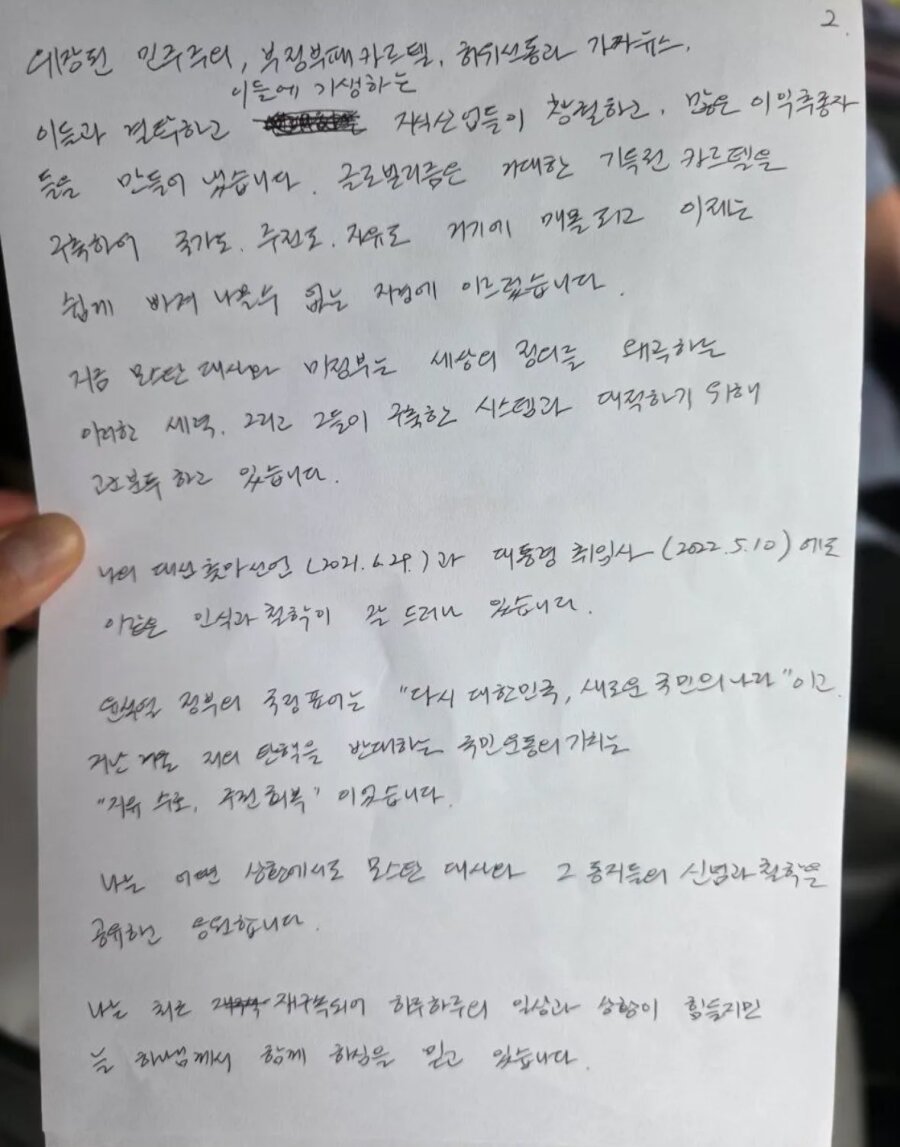 2.
위장된 민주주의, 부정부패 카르텔, 허위선동과 가짜뉴스,
이들에 기생하는
이들과 결탁하고 지식산업들이 창궐하고, 많은 이익추종자
들을 만들어 냈습니다. 글로벌리즘은 거대한 기득권 카르텔을
구축하여 국가도, 주권도, 자유도 거기에 매몰되고 이제는
쉽게 빠져 나올수 없는 지경에 이르렀습니다.
지금 모스탄 대사와 미정부는 세상의 정의를 왜곡하는
이러한 세력, 그리고 그들이 구축한 시스템과 대적하기 위해
고군분투 하고 있습니다.
나의 대선 출마선언(2021.6.29.)과 대통령 취임사(2022.5.10)에도
이같은 인식과 철학이 잘 드러나 있습니다.
윤석열 정부의 국정표어는 "다시 대한민국, 새로운 국민의 나라"이고
지난 겨울 저의 탄핵을 반대하는 국민운동의 기치는
"자유 수호, 주권 회복" 이었습니다.
나는 어떤 상황에서도 모스탄 대사와 그 동지들의 신념과 철학을
공유하고 응원합니다.
나는 최근 재구속되어 하루하루의 일상과 상황이 힘들지만
늘 하나님께서 함께 하심을 믿고 있습니다.